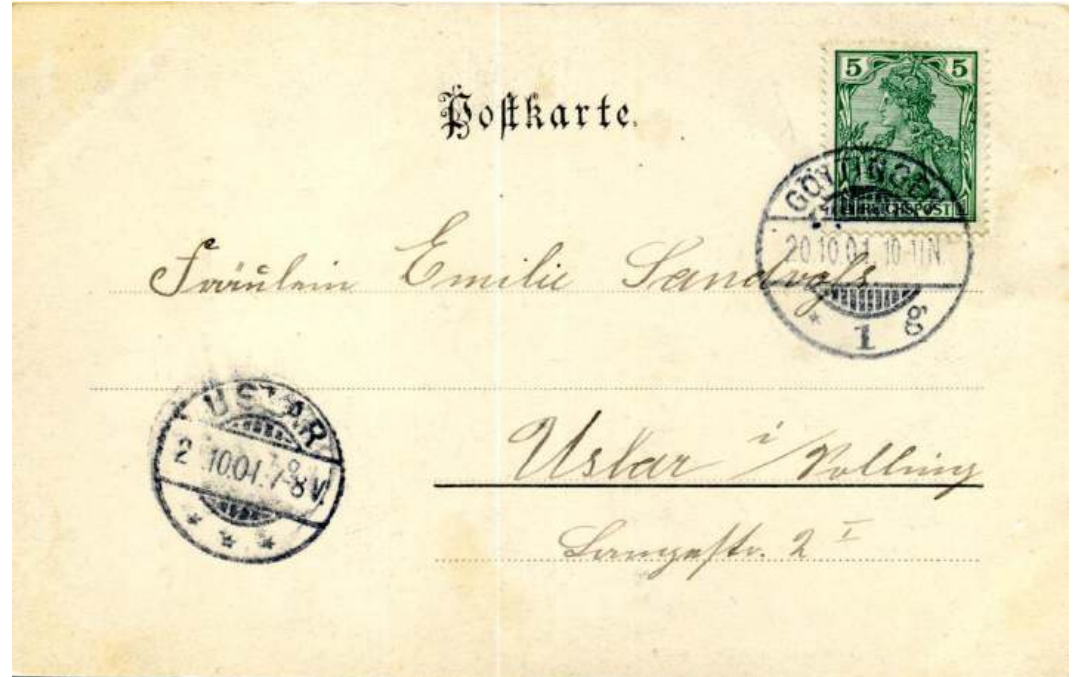 5 5
Postkarte.
REICHSPOST
GÖTTINGEN
20.10.01. 10-11N
* 1 a
Fräulein Emilie Sandvoß.
USLAR
2 .10.01. 7-8V.
* * *
Uslar i/Solling
Langestr. 2 I